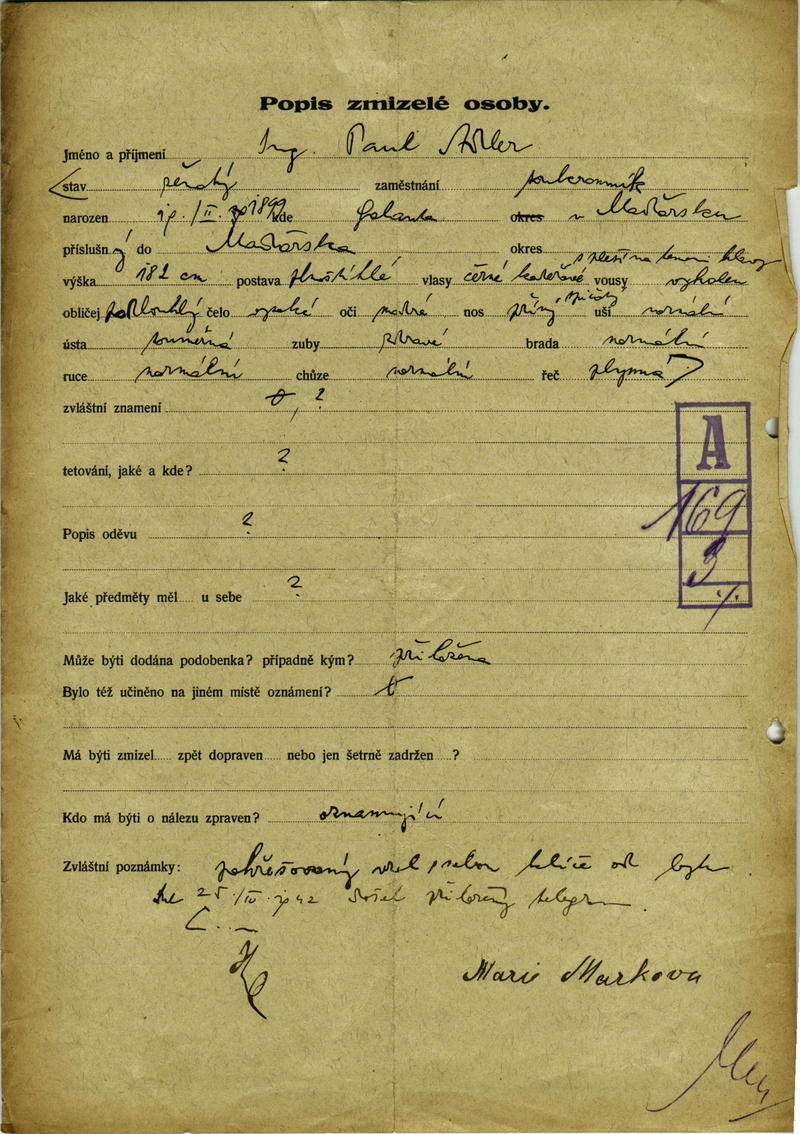 Popis zmizelé osoby.
Jméno a příjmení Ing. Paul Adler
stav ženatý zaměstnání soukromník
narozen 19./II. 1899 kde Galanta okres v Maďarsku
příslušný do Maďarska okres
s pleší na temeni hlavy
výška 182 cm postava štíhlé vlasy černé kadeřavé vousy vyholen
obličej podlouhlý čelo vysoké oči modré nos přímý, špičatý uši normální
ústa souměrná zuby zdravé brada normální
ruce normální chůze normální řeč plynná
zvláštní znamení ?
tetování, jaké a kde? ?
Popis oděvu ?
Jaké předměty měl u sebe ?
Může býti dodána podobenka? případně kým? přiložena
Bylo též učiněno na jiném místě oznámení?
Má býti zmizel zpět dopraven nebo jen šetrně zadržen ?
Kdo má býti o nálezu zpraven? oznamující
Zvláštní poznámky: pohřešovaný vzal s sebou klíče od bytu.
25/IV. 1942 došel přiložený telegram.
Marie Markova
A
169
3